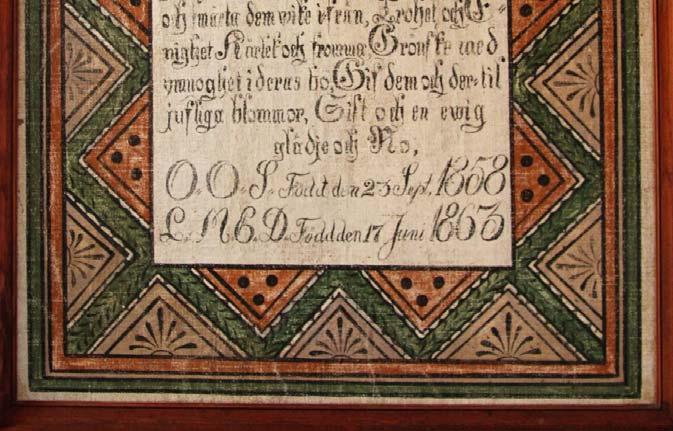 och smärta dem vike ifrån, Trohet och E=
nighet Kärlek och fromma Grönske med
ymnoghet i deras bo, Gif dem och der-til
jufliga blommor, Gift och en ewig
glädje och Ro,
O. O. S. Född den 23 Sept. 1858
L. N. C. D. Född den 17 Juni 1863